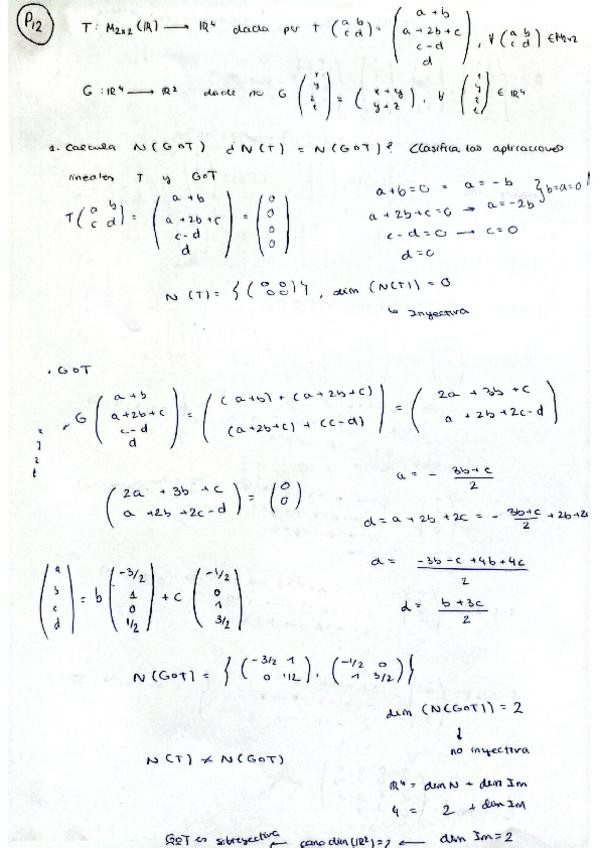 P12
T: M2x2(IR) → IR⁴ dada por T (a b / c d) = (a+b / a+2b+c / c-d / d), ∀ (a b / c d) ∈ M2x2
G: IR⁴ → IR² dada G (x / y / z / t) = (x+y / y+z), ∀ (x / y / z / t) ∈ IR⁴
1. Calcula N(GoT) ¿N(T) = N(GoT)? Clasifica las aplicaciones
lineales T y GoT
T (a b / c d) = (a+b / a+2b+c / c-d / d) = (0 / 0 / 0 / 0)
a+b=0 = a=-b
a+2b+c=0 → a=-2b } b=a=0
c-d=0 → c=0
d=0
N(T) = {(0 0 / 0 0)}, dim (N(T)) = 0
↳ Inyectiva
. GoT
x
y
z
t
G (a+b / a+2b+c / c-d / d) = ((a+b)+(a+2b+c) / (a+2b+c)+(c-d)) = (2a+3b+c / a+2b+2c-d)
(2a+3b+c / a+2b+2c-d) = (0 / 0)
a = - (3b+c)/2
d = a+2b+2c = - (3b+c)/2 + 2b+2c
d = (-3b-c+4b+4c)/2
d = (b+3c)/2
(a / b / c / d) = b (-3/2 / 1 / 0 / 1/2) + c (-1/2 / 0 / 1 / 3/2)
N(GoT) = {(-3/2 1 / 0 1/2), (-1/2 0 / 1 3/2)}
dim (N(GoT)) = 2
↓
no inyectiva
N(T) ≠ N(GoT)
IR⁴ = dim N + dim Im
4 = 2 + dim Im
GoT es sobreyectiva ← como dim(IR²)=2 ← dim Im = 2